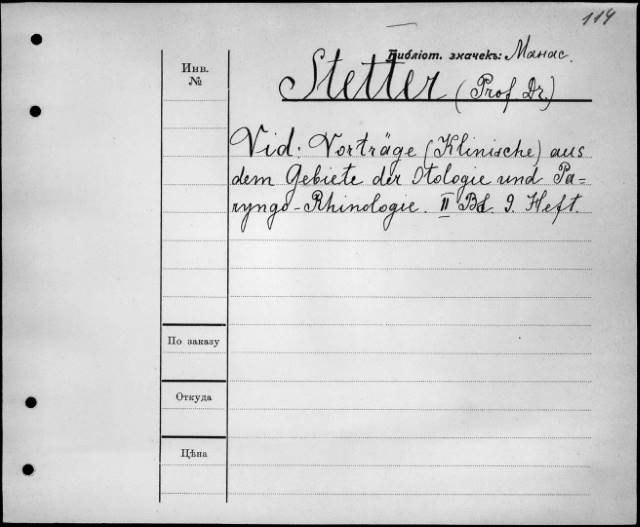 114
Библіот. значекъ: Манас.
Инв.
№
Stetter (Prof Dr.)
Vid. Vorträge (Klinische) aus
dem Gebiete der Otologie und Pa=
ryngo-Rhinologie. II Bd. 9. Heft.
По заказу
Откуда
Цѣна